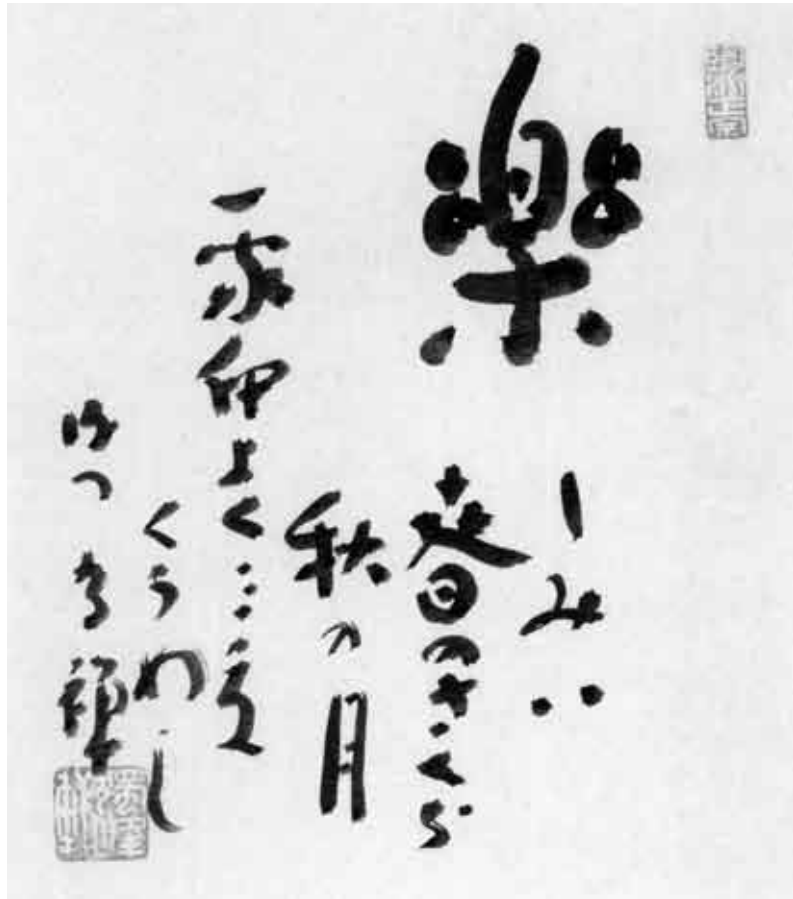 樂
しみハ
春のさくら
秋の月
一家仲よく三度
くうめし